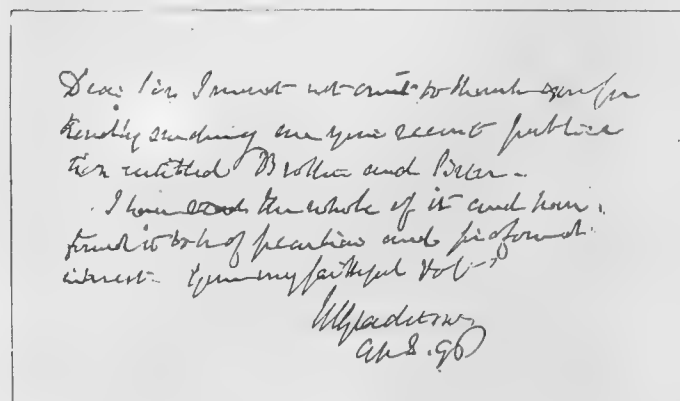 Dear Sir I must not omit to thank you for
kindly sending me your recent publica
tion entitled Brother and Sister.
I have read the whole of it and have
found it to be of peculiar and profound
interest. Your very faithful
WGladstone
Ap 8. 90